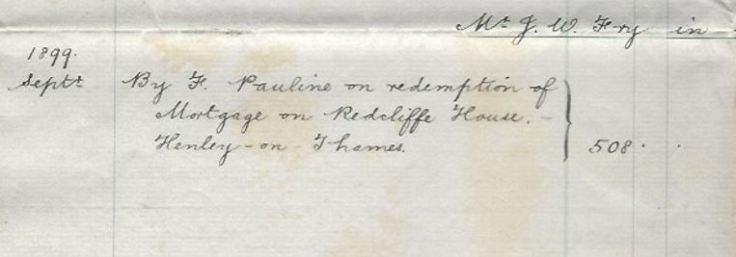 Mr J. W. Fry in
1899.
Septr By F. Pauline on redemption of
Mortgage on Redcliffe House. -
Henley - on - Thames. 508 . .